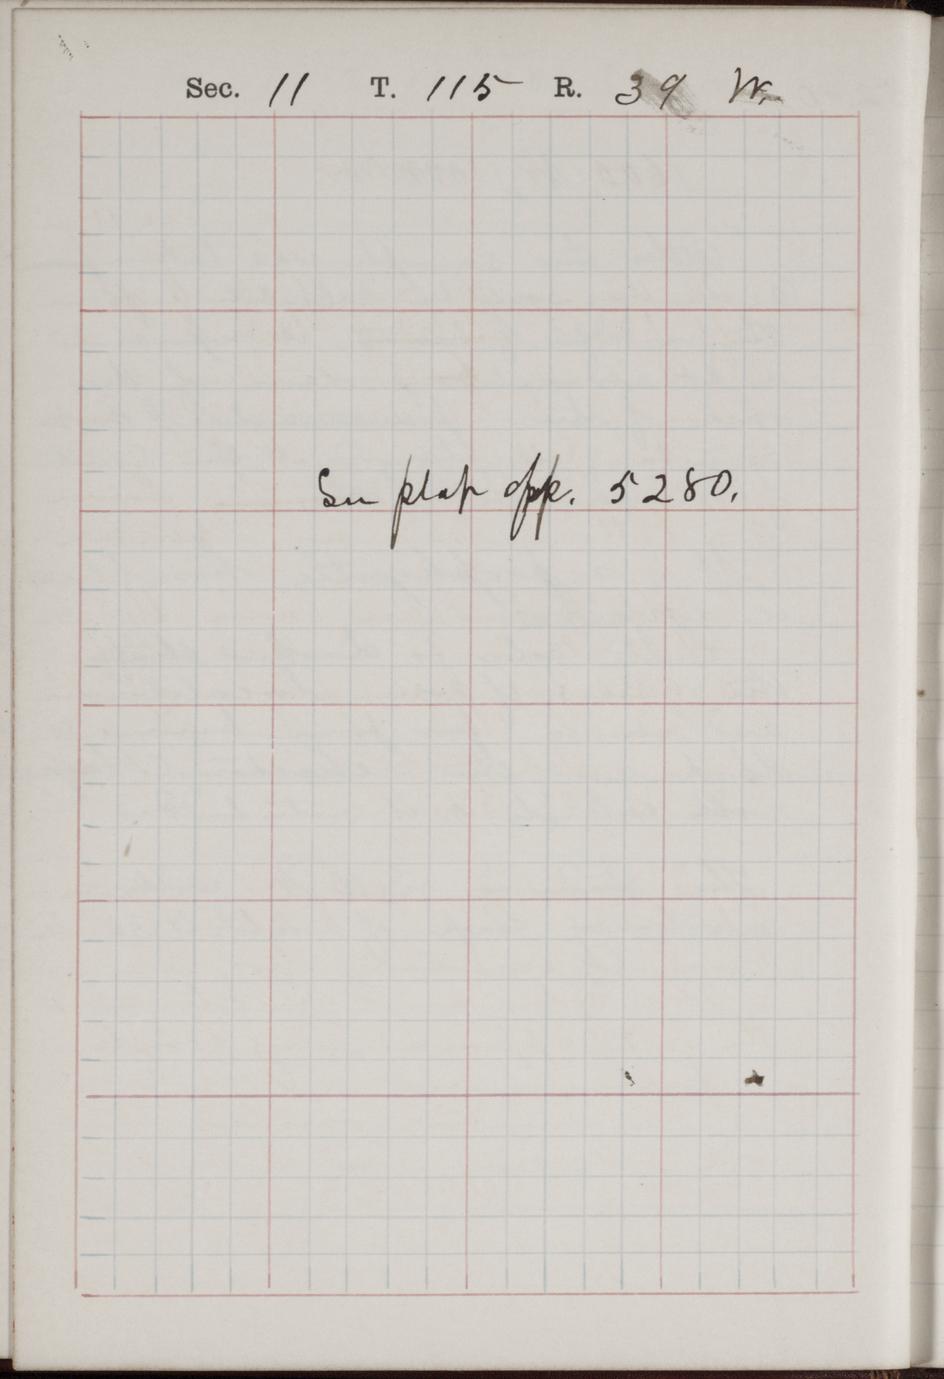 Sec. 11 T. 115 R. 39 W.
See plat opp. 5280.